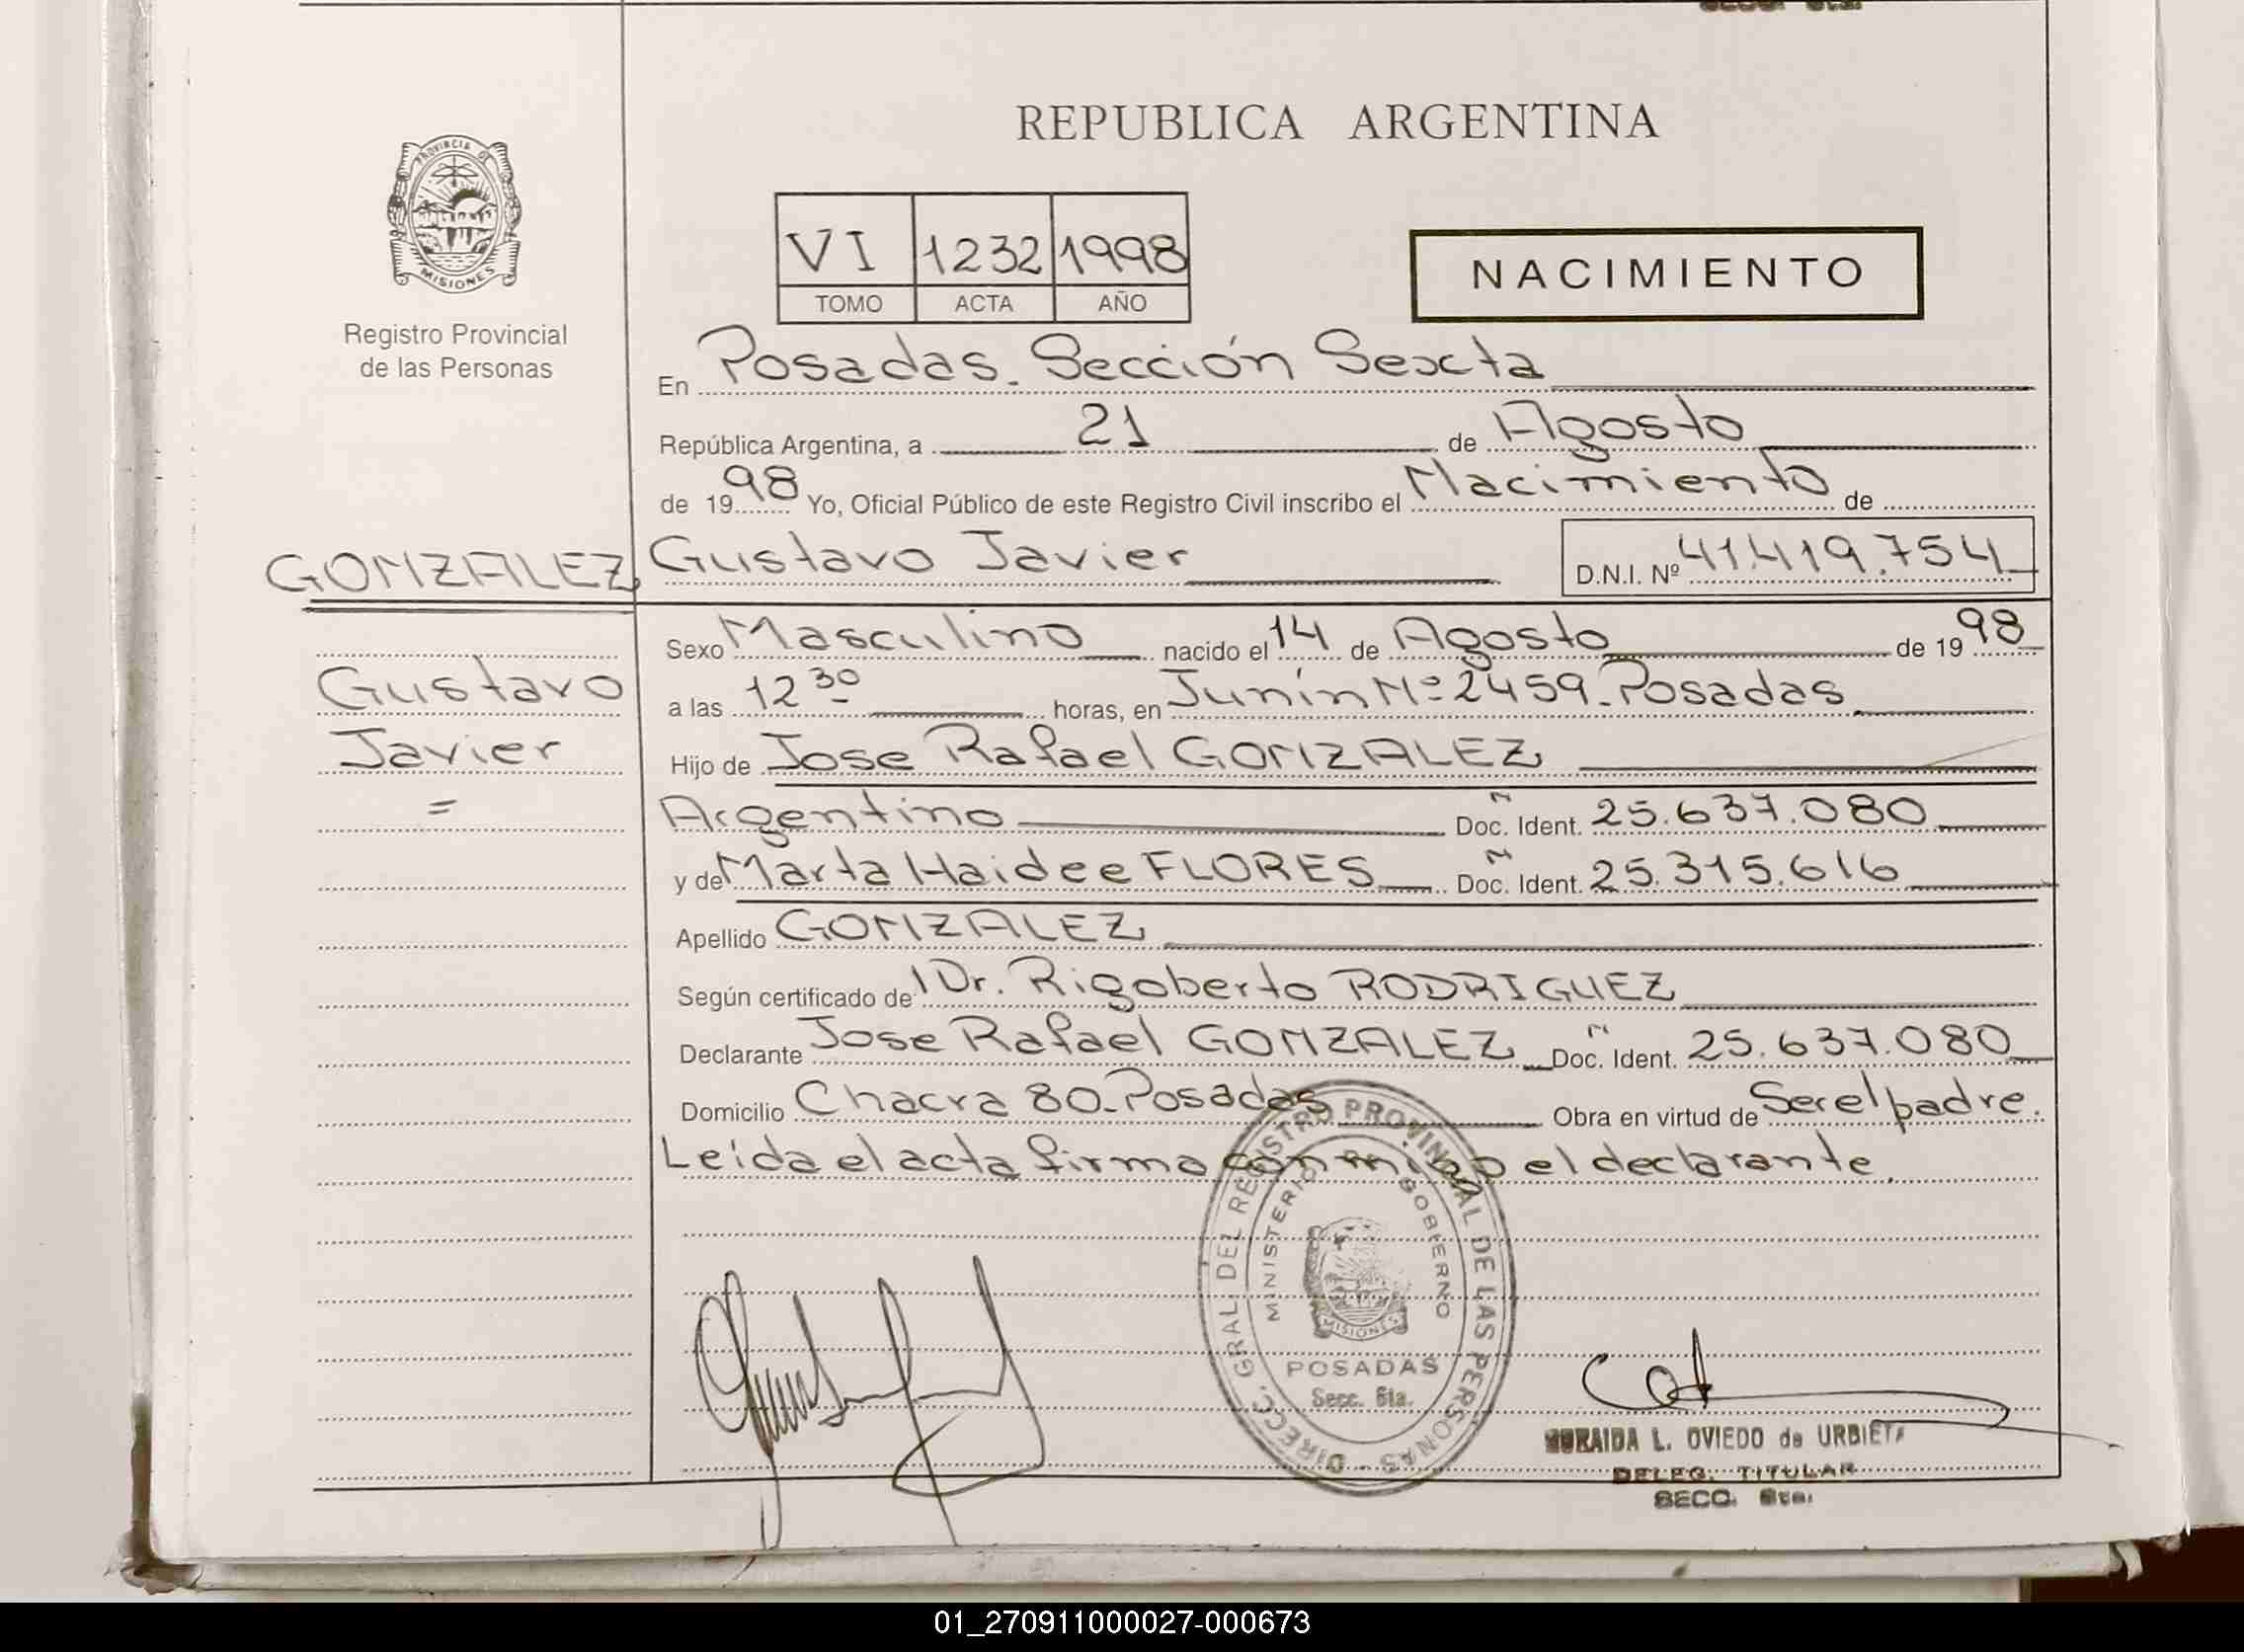 REPUBLICA ARGENTINA
PROVINCIA DE
MISIONES
Registro Provincial
de las Personas
VI 1232 1998
TOMO ACTA AÑO
NACIMIENTO
En Posadas. Sección Sexta
República Argentina, a 21 de Agosto
de 1998 Yo, Oficial Público de este Registro Civil inscribo el Nacimiento de
GONZALEZ, Gustavo Javier D.N.I. Nº 41.419.754
Gustavo
Javier
=
Sexo Masculino nacido el 14 de Agosto de 1998
a las 12 30 horas, en Junín Nº 2459. Posadas
Hijo de Jose Rafael GONZALEZ
Argentino Doc. Ident. 25.637.080
y de Marta Haidee FLORES Doc. Ident. 25.315.616
Apellido GONZALEZ
Según certificado de Dr. Rigoberto RODRIGUEZ
Declarante Jose Rafael GONZALEZ Doc. Ident. 25.637.080
Domicilio Chacra 80. Posadas Obra en virtud de Ser el padre.
Leída el acta firma conmigo el declarante.
DIRECC. GRAL. DEL REGISTRO PROVINCIAL DE LAS PERSONAS
MINISTERIO DE GOBIERNO
MISIONES
POSADAS
Secc. 6ta.
L. OVIEDO de URBIETA
DELEG. TITULAR
SECC. 6ta.
01_270911000027-000673